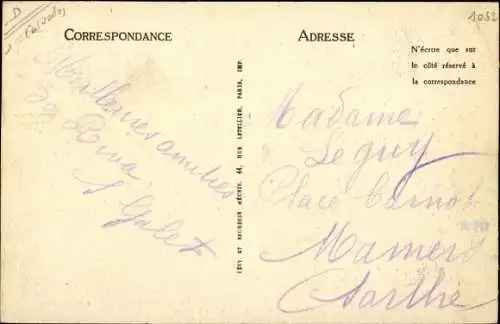 D
Calvados
1052
CORRESPONDANCE
ADRESSE
N'écrire que sur
le côté réservé à
la correspondance
Meilleures amitiés
Galet
LÉVY ET NEURDEIN RÉUNIS, 44, RUE LETELLIER, PARIS, IMP.
Madame
Le guy
Place Carnot
Mamers
Sarthe